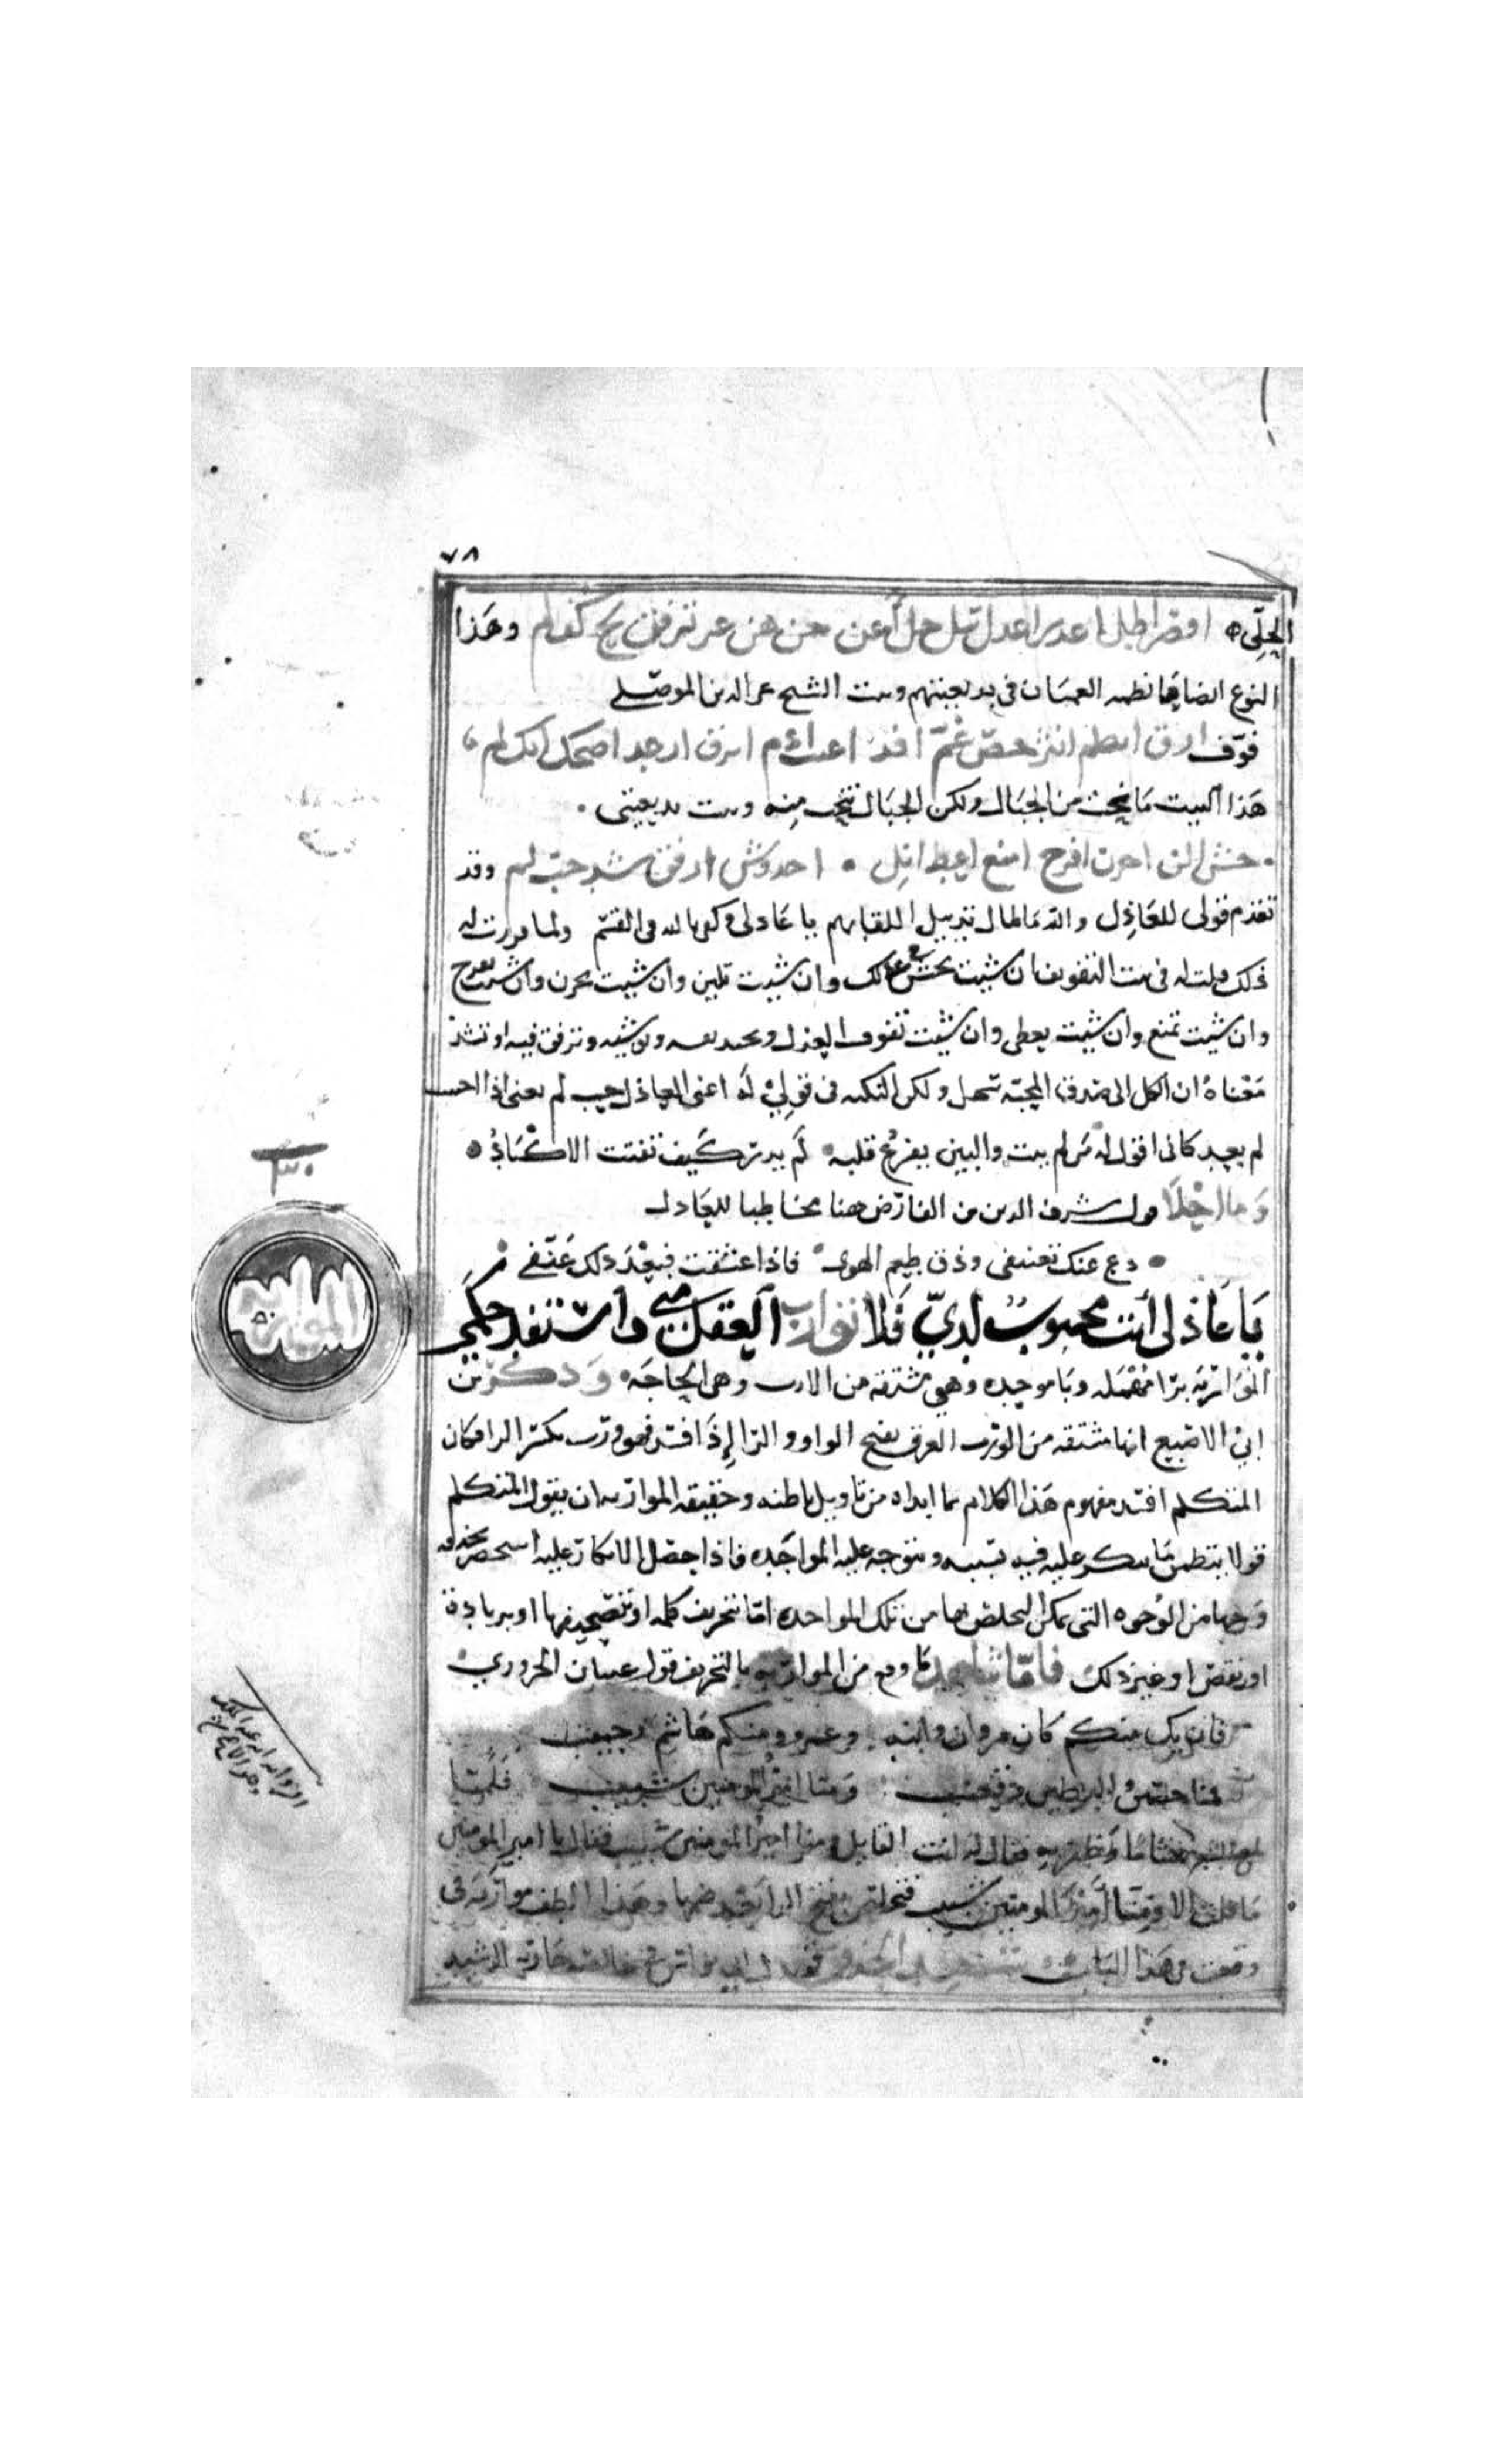 ٧٨
الحلي اقصر اطل اعذر اعذل سل خل أعن خن هن عن ترفق كف لم وهذا
النوع ايضا ما نظمه العميان في بديعيتهم وبيت الشيخ عز الدين الموصلي
فوّف انظم انثر خصّ عمّ افد اعتب ارق ارعد اضحك ابك لم
هذا البيت ما نحت من الجبال ولكن الجبال نحت منه وبيت بديعيتي
خشن الن احزن افرح امنع اعط انل فوّف ارفق شد حب لم وقد
تقدم قولي للعاذل يا عاذلي وكفوا لله في القسم ولما
ذلك قلت له في بيت التفويف ان شيت تخشن وان شيت تلين وان شيت تحزن وان شيت تفرح
وان شيت تمنع وان شيت تعطى وان شيت تفوف العذل وتوشيه وترفق فيه او تشد
معناه ان الكل الى صدق المحبة سهل ولكن النكته في قولي له اعنى العاذل حب لم يعنى اذا احب
لم يعد كانى اقول له من لم يبت والبين يقرع قلبه لم يدر كيف تفتت الاكباد
وما احلا قول شرف الدين بن الفارض هنا مخاطبا للعاذل
دع عنك تعنيفى وذق طعم الهوى فاذا عشقت فبعد ذلك عنّف
يا عاذلي أنت محبوب لديّ فلا توارب العقل منى واستفد حكمى
المواربة
المواربة برا مهملة وبا موحدة وهى مشتقة من الارب وهى الحاجة وذكر بن
ابي الاصبع انها مشتقة من الورب العرق بفتح الواو والرا إذا فسد فهو ورب بكسر الرا فكان
المتكلم افسد مفهوم هذا الكلام بما ابداه من تاويل باطنه وحقيقة المواربة ان يقول المتكلم
قولا يتضمن ما ينكر عليه فيه بسببه ويتوجه عليه المواخذه فاذا حصل الانكار عليه استحضر بحذقه
وجها من الوجوه التى يمكن التخلص بها من تلك المواخذه اما بتحريف كلمة او تصحيفها او بزيادة
او نقص او غير ذلك فاما شاهد ما وقع من المواربة بالتحريف قول عتبان الحروري
فان يك منكم كان مروان وابنه وعمرو ومنكم هاشم وحبيب
فمنا حصين والبطين وقعنب ومنا امير المومنين شبيب فلما
بلغ الشعر هشاما وظفر به فقال له انت القايل ومنا امير المومنين شبيب فقال يا امير المومنين
ما قلت الا ومنا أميرَ المومنين شبيب فتخلص بفتح الرا بعد ضمها وهذا الطف مواربة
وقعت في هذا الباب قول ابى نواس في خالصة جارية الرشيد